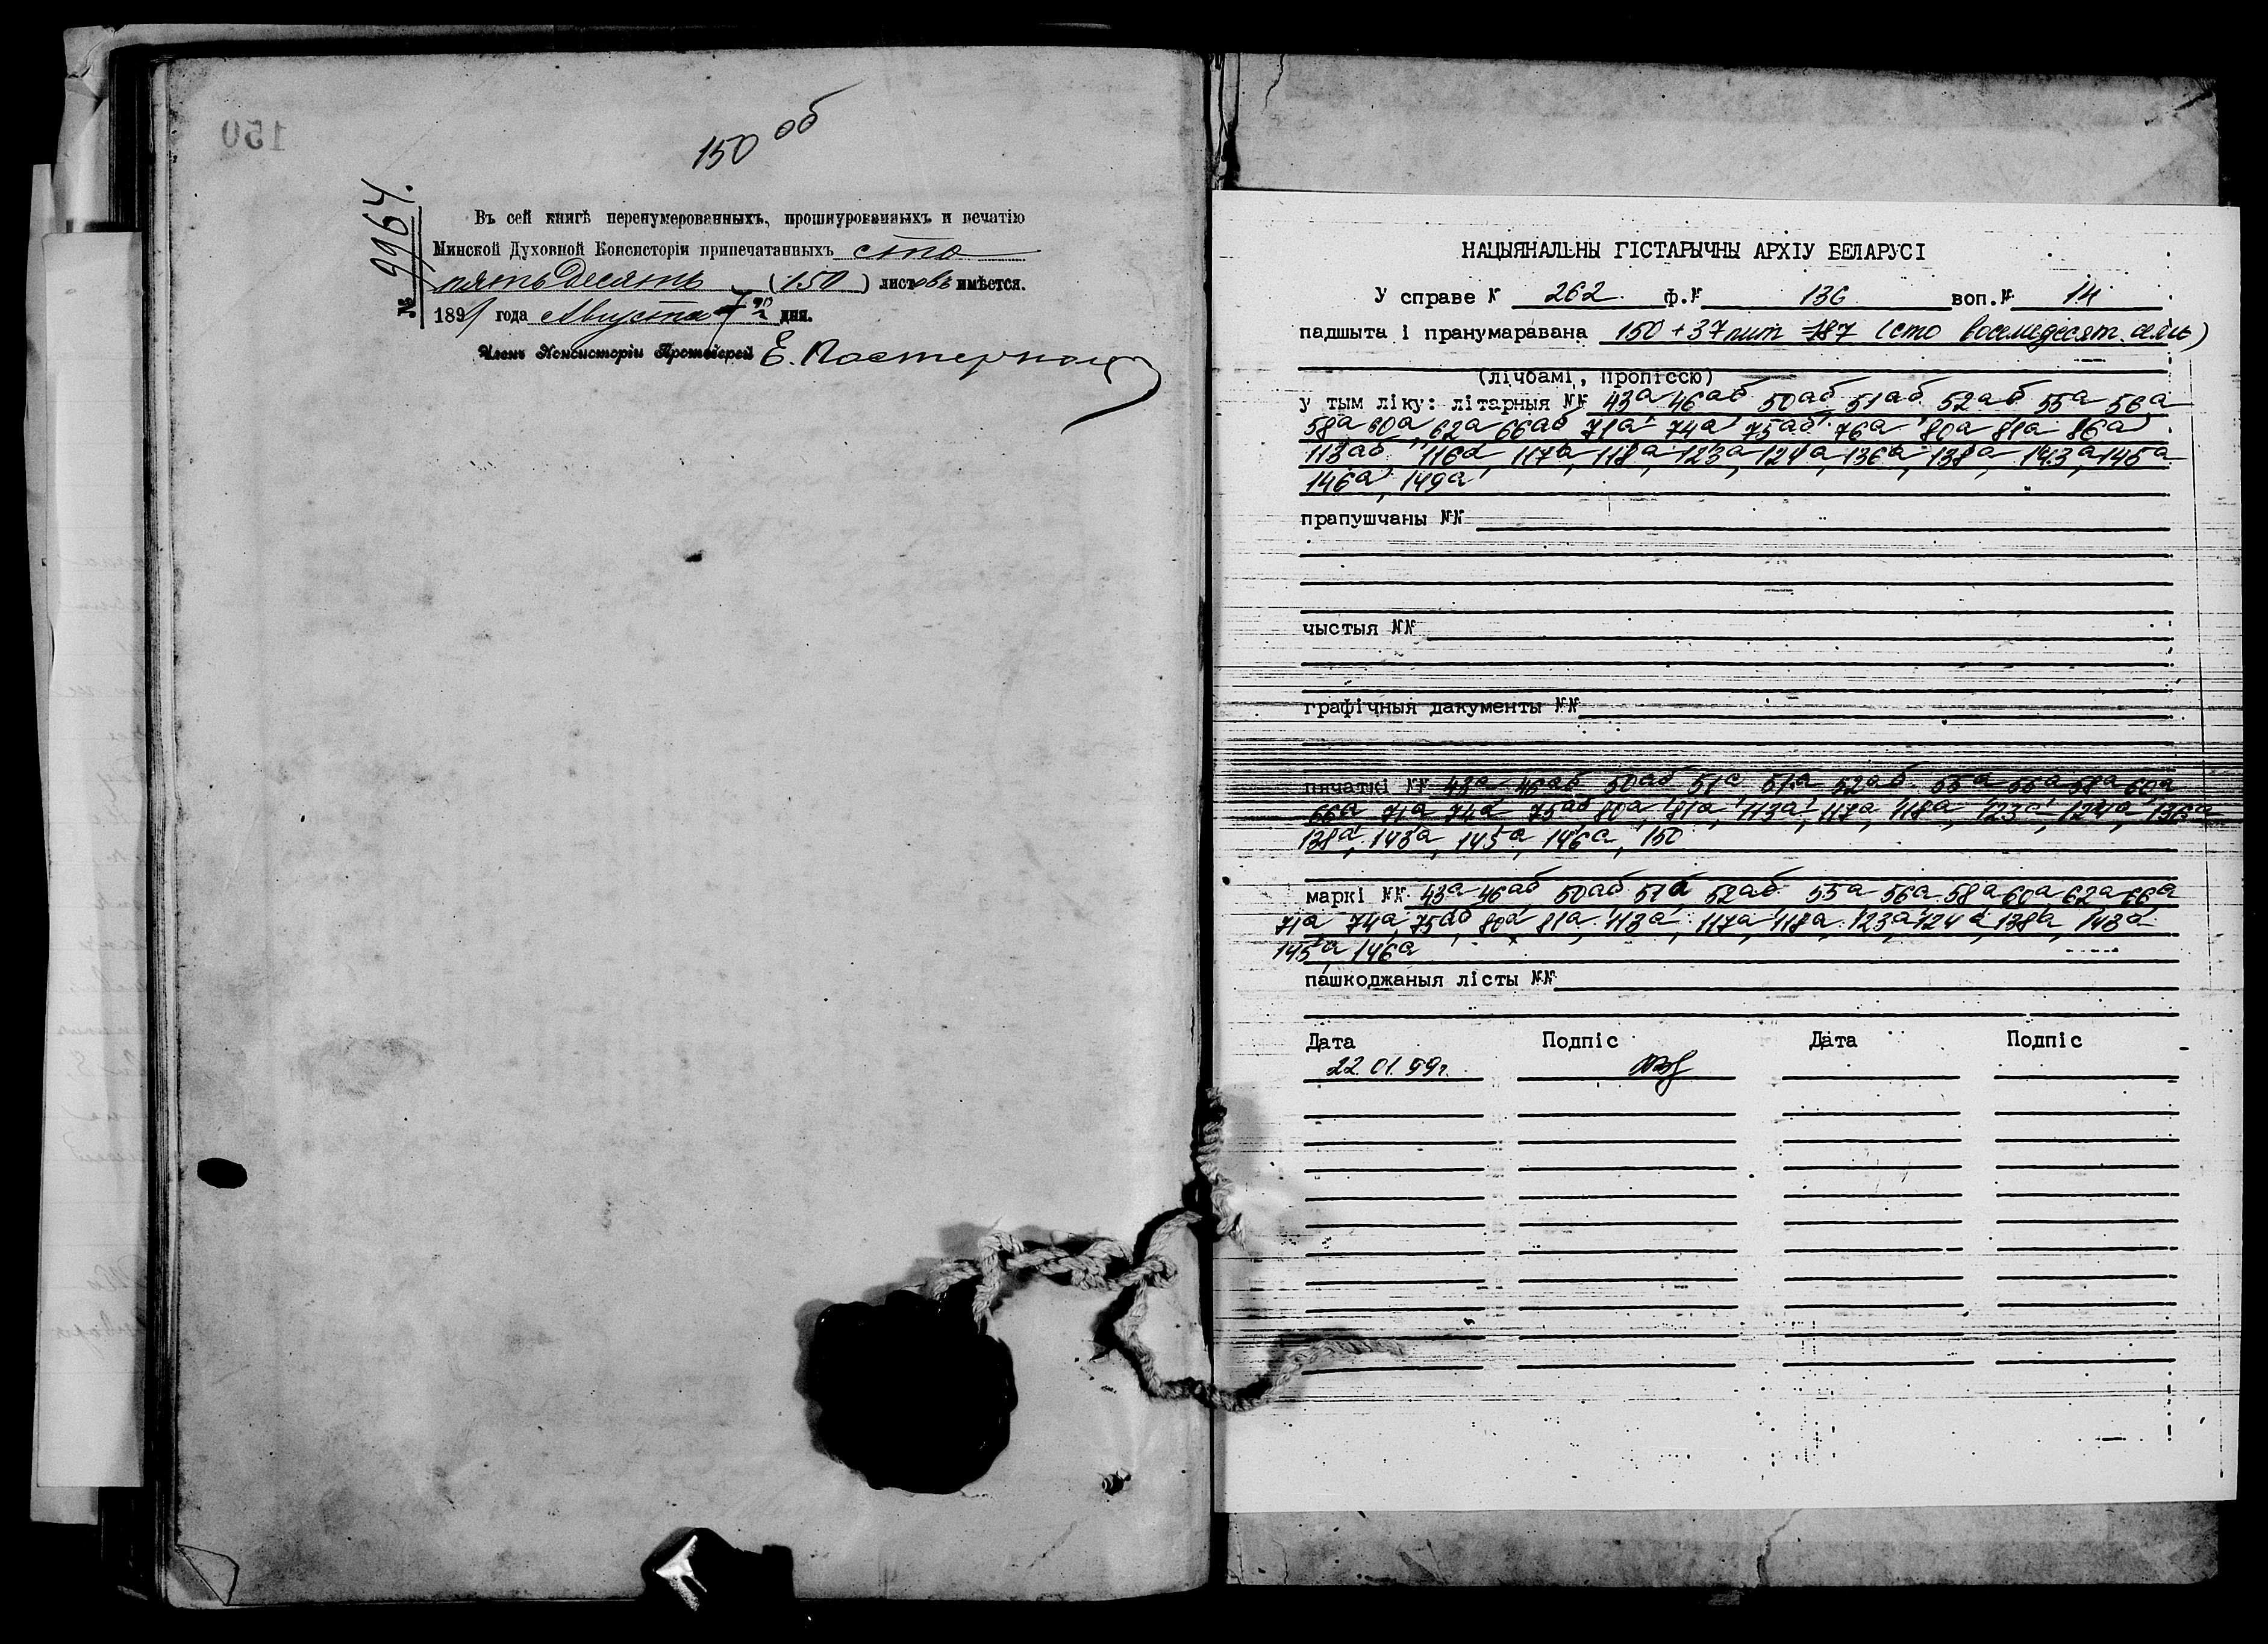 150 об
150
№ 9964.
Въ сей книгѣ перенумерованныхъ, прошнурованныхъ и печатію
Минской Духовной Консисторіи припечатанныхъ сто
пятьдесятъ (150) листовъ имѣется.
1891 года Августа 7го дня.
Членъ Консисторіи Протоіерей Е. Пастернак
НАЦЫЯНАЛЬНЫ ГІСТАРЫЧНЫ АРХІУ БЕЛАРУСІ
У справе № 262 ф.№ 136 воп.№ 14
падшыта і пранумаравана 150+37лит 187 (сто восемьдесят семь)
(лічбамі, пропіссю)
у тым ліку: літарныя №№ 43а 46аб 50аб 51аб 52аб 55а 56а
58а 60а, 62а 66аб 71а 74а 75аб 76а 80а 81а 86а
113аб 116а, 117а, 118а, 123а, 124а, 136а, 138а, 143а, 145а
146а, 149а
прапушчаны №№
чыстыя №№
графічныя дакументы №№
пячаткі №№ 43а 46аб 50аб 51а 52аб 55а 56а 58а 60а
66а 71а 74а 75аб 80а, 81а, 113а, 117а, 118а, 123а, 124а, 136а
138а, 143а, 145а, 146а, 150
маркі №№ 43а 46аб 50аб 51а 52аб 55а 56а 58а 60а 62а 66а
71а 74а, 75аб, 80а 81а, 113а, 117а, 118а, 123а, 124а, 138а, 143а
145а 146а
пашкоджаныя лісты №№
Дата Подпіс Дата Подпіс
22.01.99г.